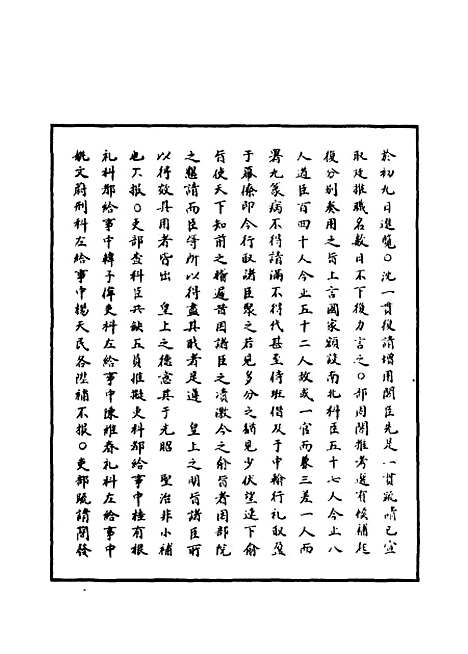 於初九日進覽○沈一貫復請增用閣臣先是一貫疏請已宣
取及推職名數日不下復力言之○部因閣推考選有候補起
復分別奏用之旨上言國家額設南北科臣五十七人今止八
人道臣百四十人今止五十二人故或一官而兼三差一人而
署九篆病不得請滿不得代甚至侍班借及于中翰行礼取盈
于羣僚即今行取諸臣聚之后見多分之猶見少伏望速下俞
旨使天下知前之稽遲皆因諸臣之瀆激今之俞旨者因部院
之懇請而臣等所以得盡其職者是遵　皇上之明旨諸臣所
以得效其用者皆出　皇上之德意其于光昭　聖治非小補
也不报○吏部查科臣共缺五員推擬吏科都給事中桂有根
礼科都給事中韓子偉吏科左給事中陳維春礼科左給事中
姚文蔚刑科左給事中楊天民各陞補不报○吏部疏請閣發